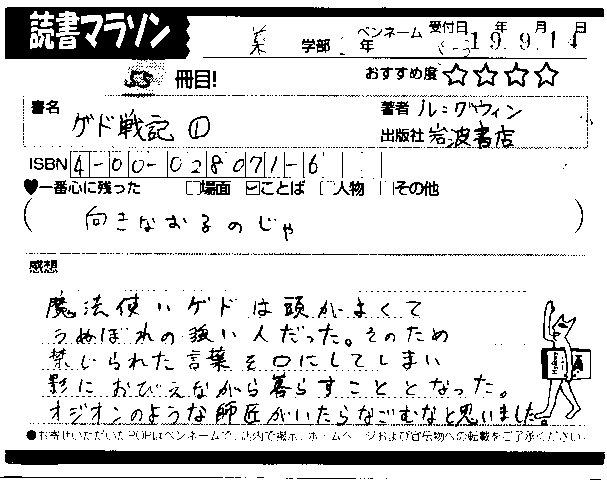 読書マラソン
薬 学部 年 ペンネーム 受付日 19年 9月 14日
55 冊目! おすすめ度 ☆☆☆☆
書名 ゲド戦記 ① 著者 ル=グウィン
出版社 岩波書店
ISBN 4-00-028071-6
♥一番心に残った □場面 ☑ことば □人物 □その他
(向きなおるのじゃ)
感想
魔法使いゲドは頭がよくて
うぬぼれの強い人だった。そのため
禁じられた言葉を口にしてしまい
影におびえながら暮らすこととなった。
オジオンのような師匠がいたらなごむなと思いました。
●お寄せいただいたPOPはペンネームで、店内で掲示、ホームページおよび宣伝物への転載をご了承ください。